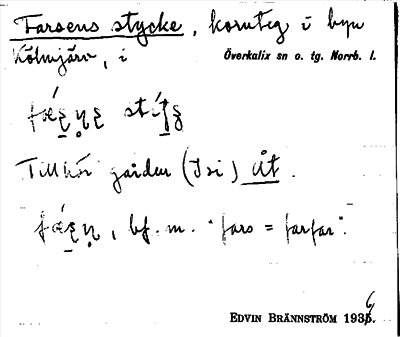 Farsens stycke, kornteg i byn
Kölmjärv, i Överkalix sn o. tg. Norrb. l.
Tillhör gården (Isi) Åt.
bf. m. "fars = farfar".
EDVIN BRÄNNSTRÖM 1936.